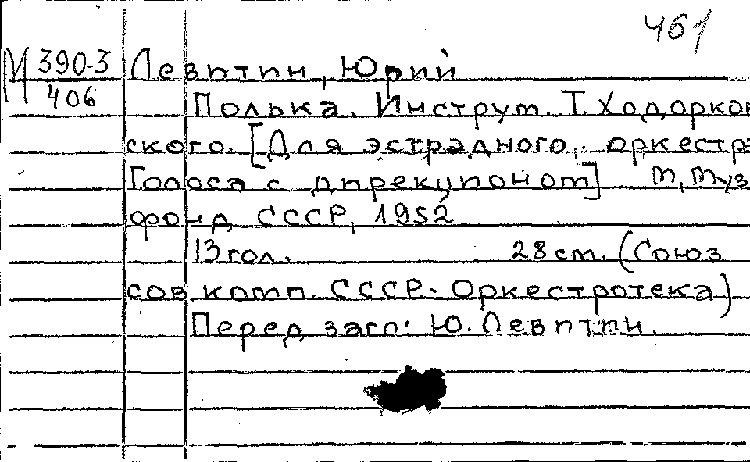 461
М 390-3 Левитин, Юрий
406
Полька. Инструт. Т. Ходорков
ского. [Для эстрадного оркестра
Голоса с дирекционом] М, Муз
фонд СССР, 1952
13 гол. 28 cm. (Союз
сов. комп. СССР. Оркестротека)
Перед загл: Ю. Левитин.